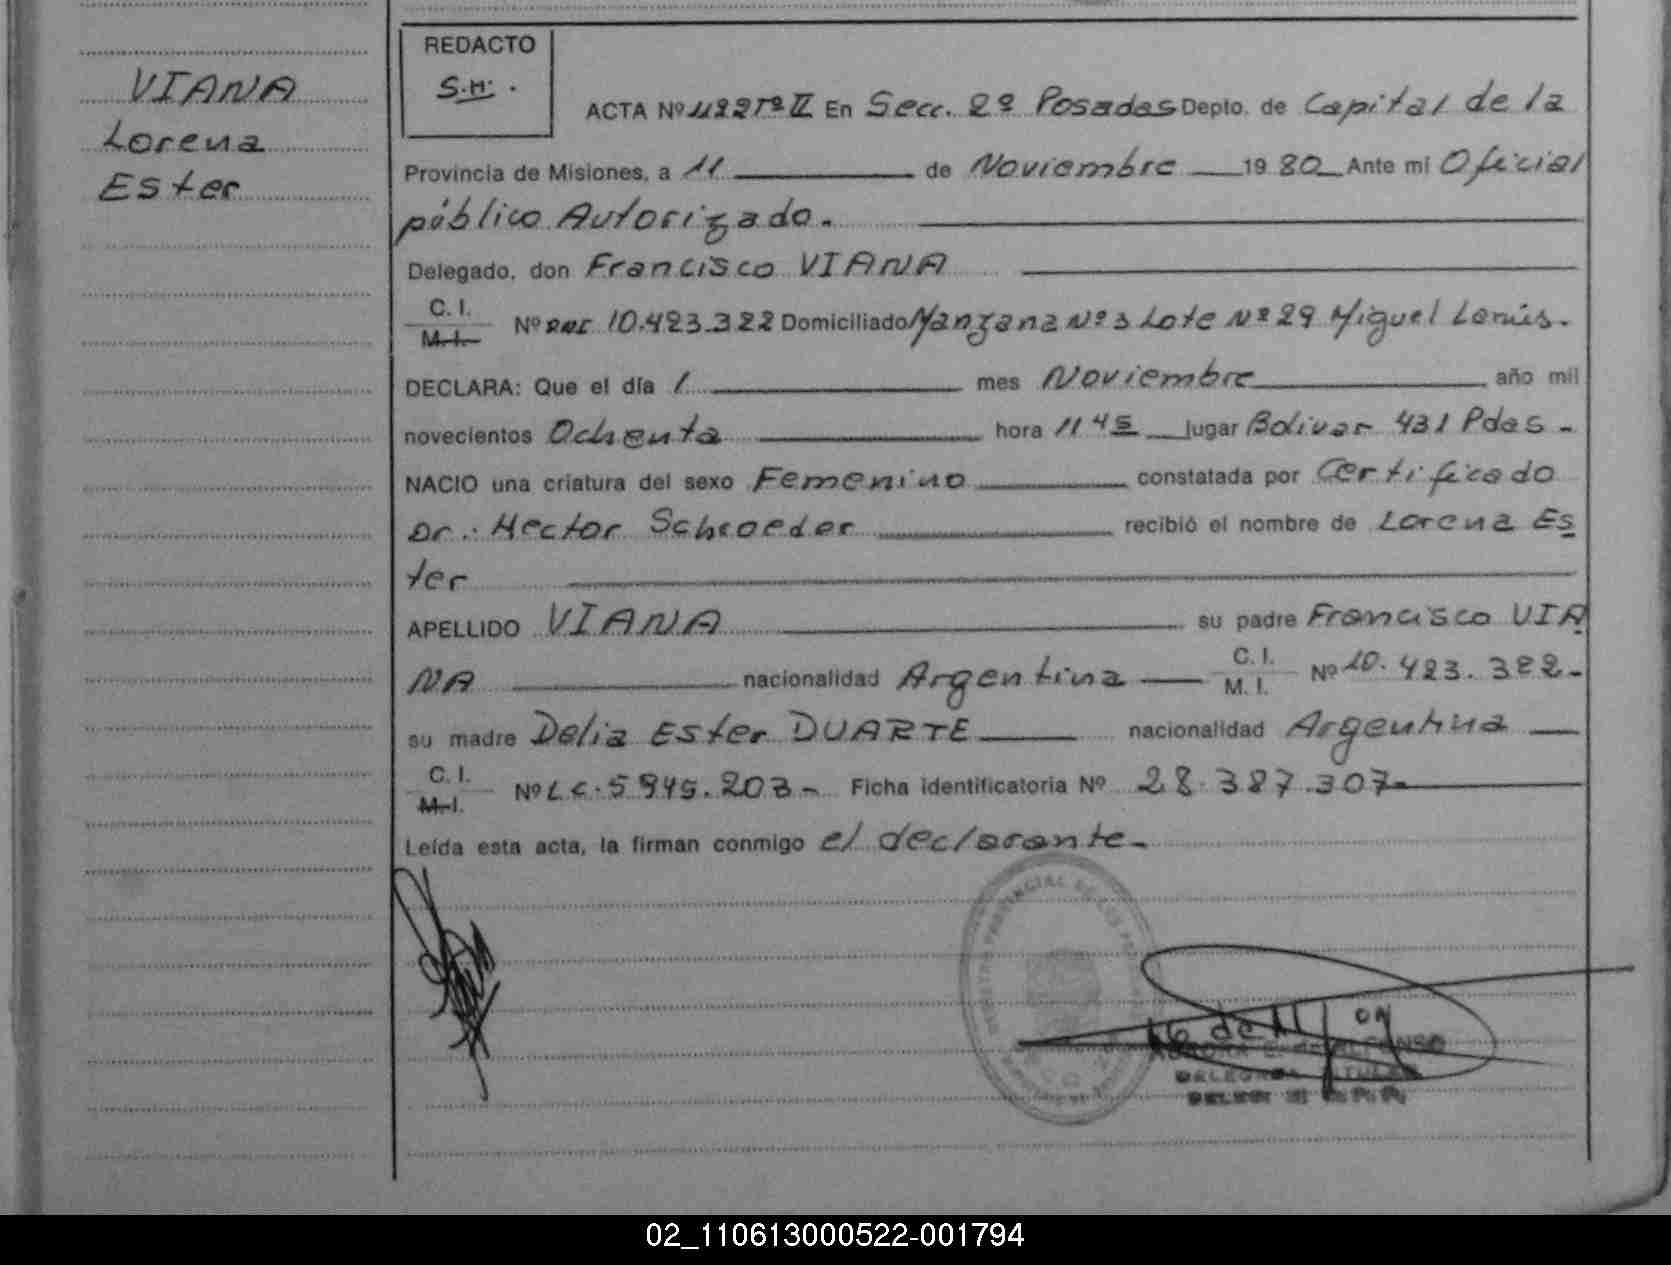 VIANA
Lorena
Ester
REDACTO
S.H.
ACTA Nº 1122 Tº II En Secc. 2º Posadas Depto. de Capital de la
Provincia de Misiones, a 11 de Noviembre 1980 Ante mi Oficial
público Autorizado.
Delegado, don Francisco VIANA
C. I.
M. I. Nº 10.423.322 Domiciliado Manzana Nº 3 Lote Nº 29 Miguel Lanús.
DECLARA: Que el día 1 mes Noviembre año mil
novecientos Ochenta hora 11 45 lugar Bolivar 431 Pdas -
NACIO una criatura del sexo Femenino constatada por Certificado
Dr.: Hector Schroeder recibió el nombre de Lorena Es
ter
APELLIDO VIANA su padre Francisco VIA
NA nacionalidad Argentina C. I.
M. I. Nº 10.423.322-
su madre Delia Ester DUARTE nacionalidad Argentina
C. I.
M. I. Nº L.C. 5.945.203- Ficha identificatoria Nº 28.387.307-
Leída esta acta, la firman conmigo el declarante-
16 de 11
02_110613000522-001794